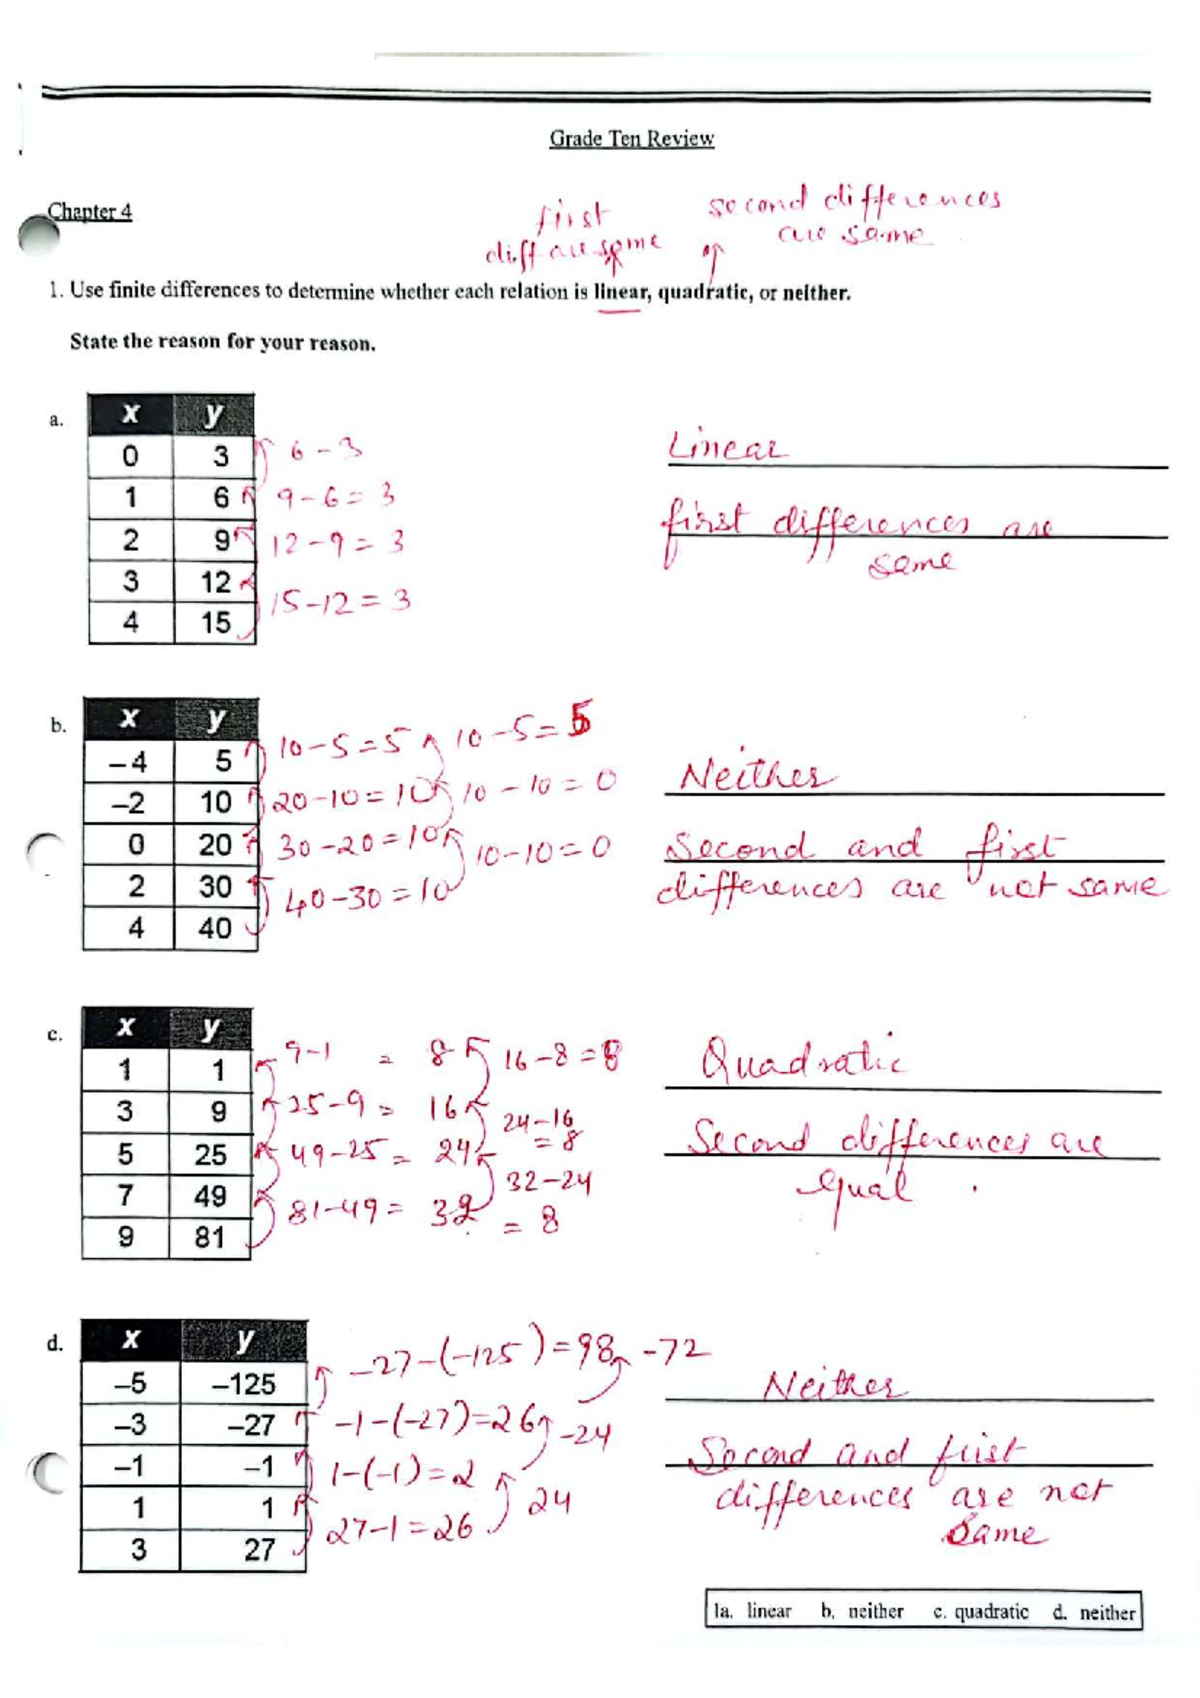 Grade Ten Review
Chapter 4
first
diff are same
second differences
are same
1. Use finite differences to determine whether each relation is linear, quadratic, or neither.
State the reason for your reason.
a.
x y
0 3 6-3
1 6 9-6=3
2 9 12-9=3
3 12 15-12=3
4 15
Linear
first differences are
same
b.
x y
-4 5 10-5=5 10-5=5
-2 10 20-10=10 10-10=0
0 20 30-20=10 10-10=0
2 30 40-30=10
4 40
Neither
Second and first
differences are not same
c.
x y
1 1 9-1 = 8 16-8=8
3 9 25-9= 16 24-16
=8
5 25 49-25= 24 32-24
= 8
7 49 81-49= 32
9 81
Quadratic
Second differences are
equal.
d.
x y
-5 -125 -27-(-125)=98 -72
-3 -27 -1-(-27)=26 -24
-1 -1 1-(-1)=2 24
1 1 27-1=26
3 27
Neither
Second and first
differences are not
same
1a. linear b. neither c. quadratic d. neither